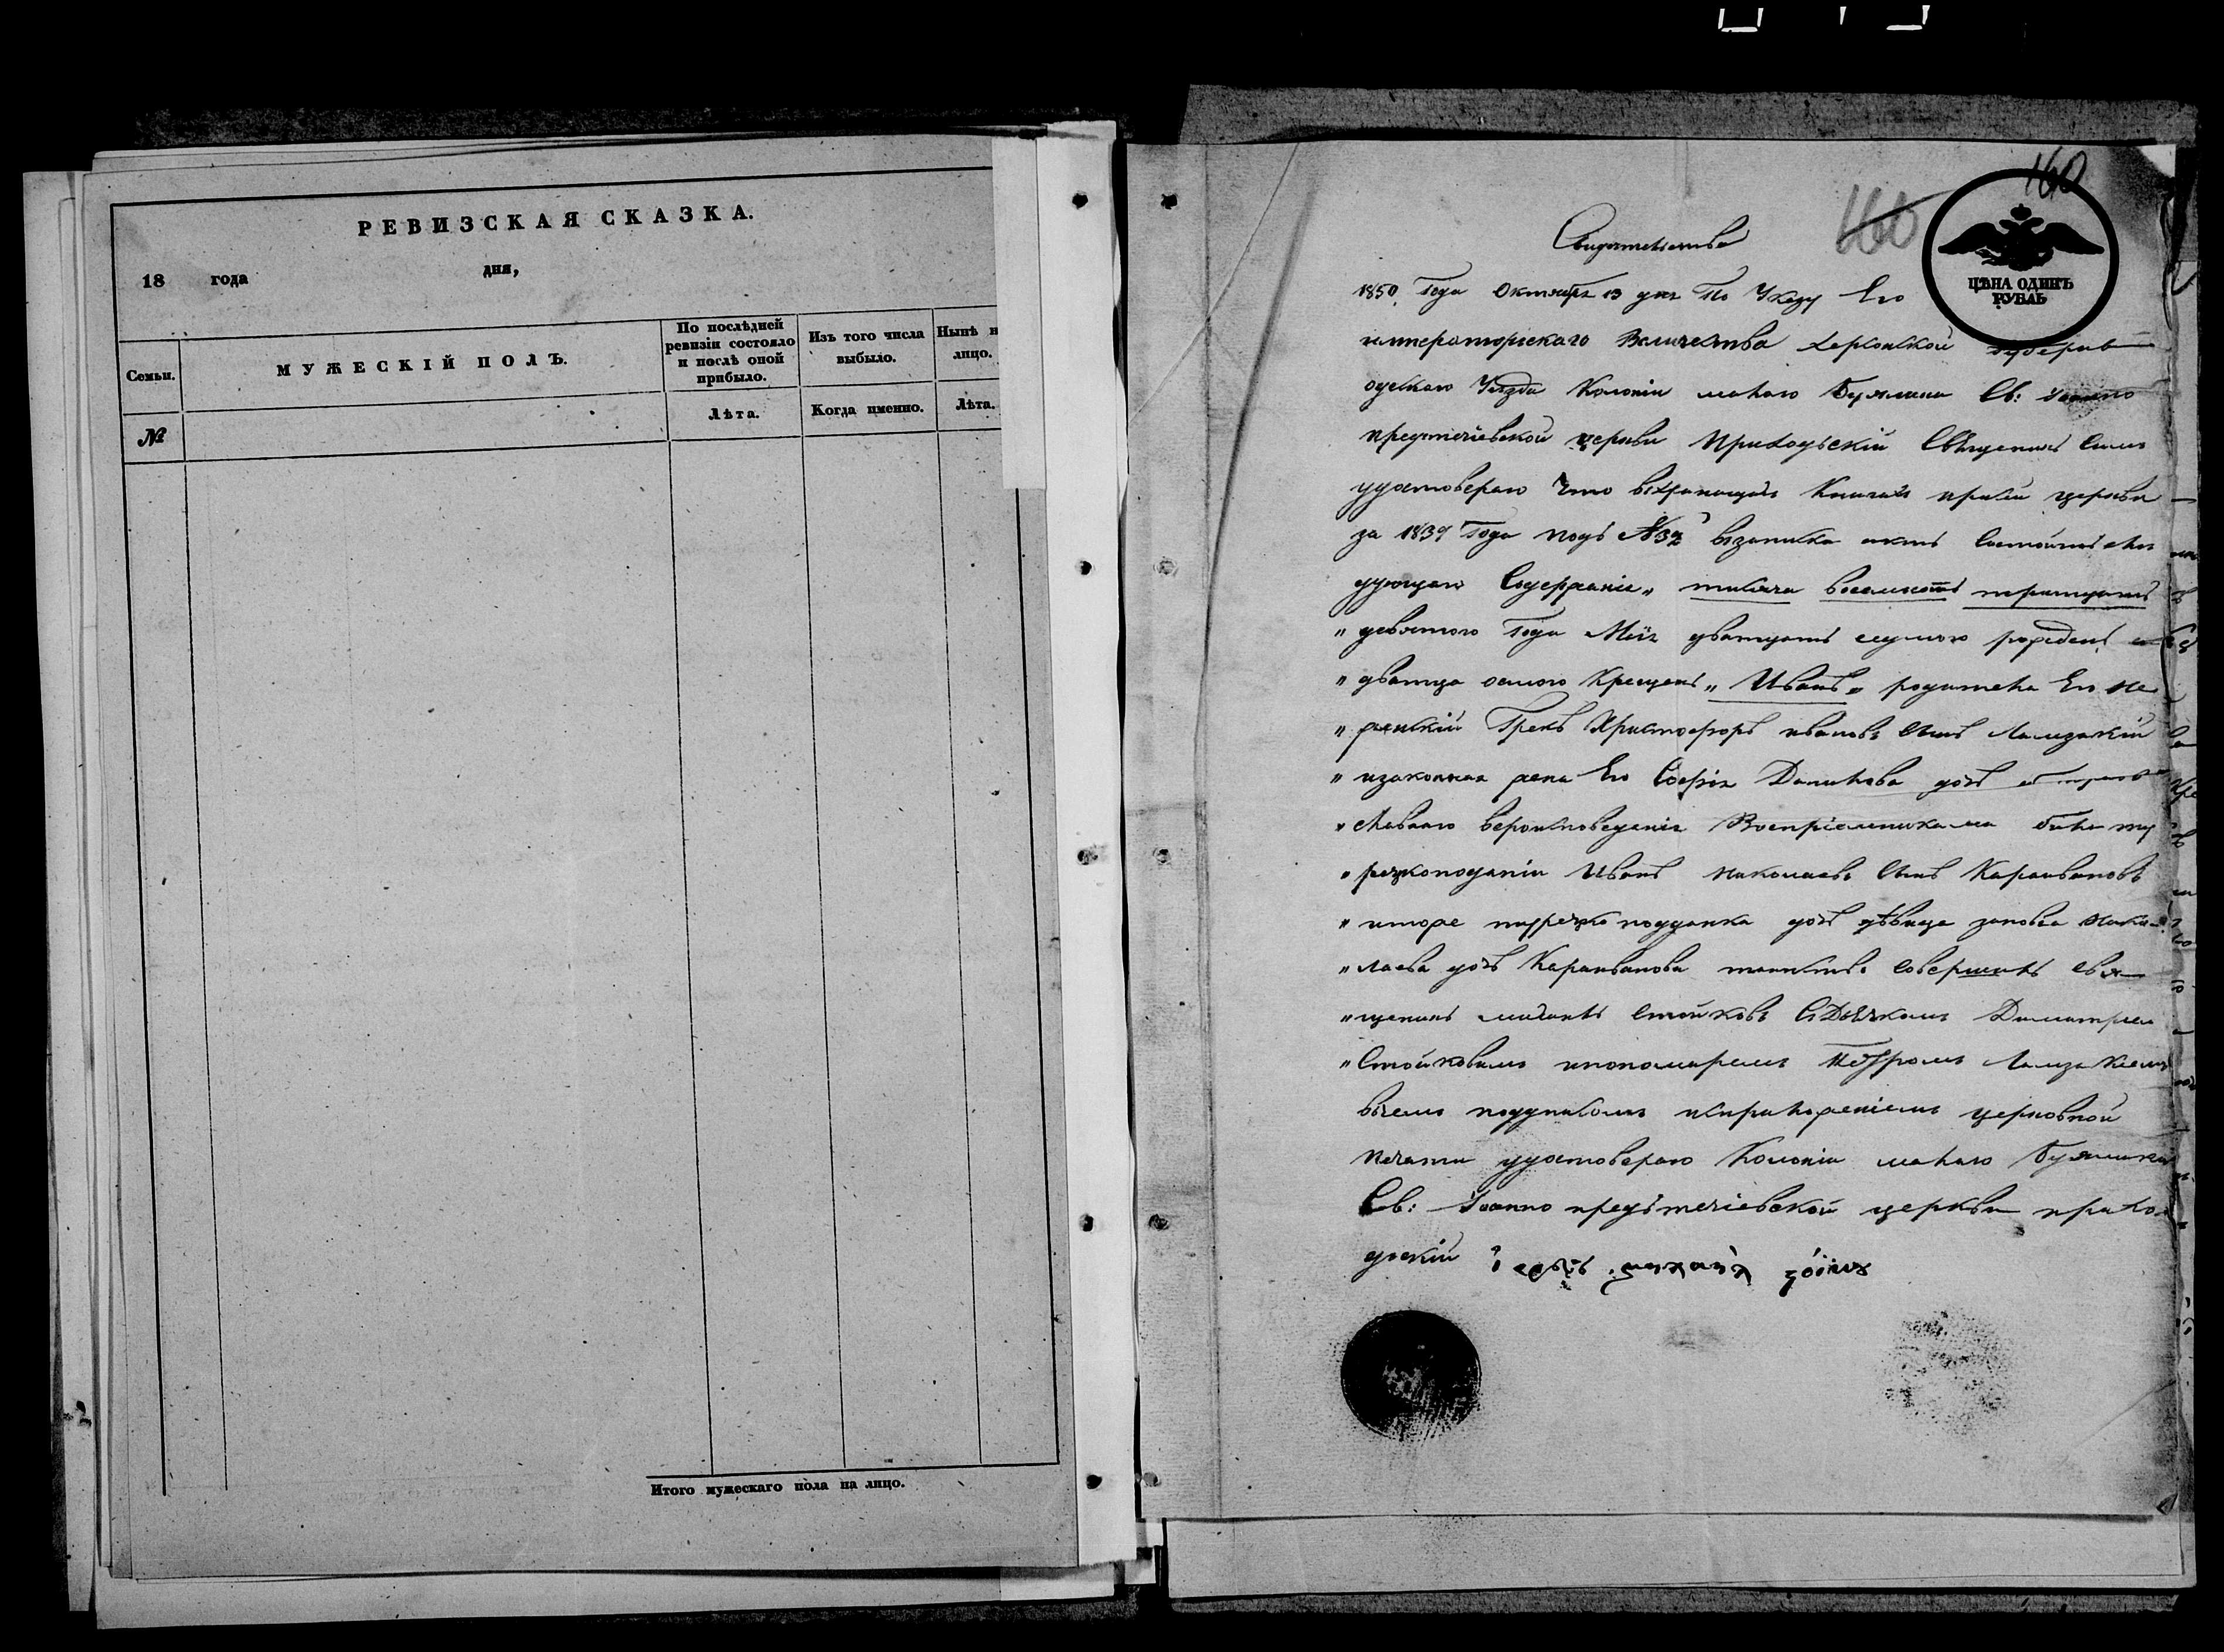 РЕВИЗСКАЯ СКАЗКА.
18 года дня,
Семьи.
МУЖЕСКІЙ ПОЛЪ.
По послѣдней
ревизіи состояло
и послѣ оной
прибыло.
Изъ того числа
выбыло.
Нынѣ н
лицо.
Лѣта.
Когда именно.
Лѣта.
№
Итого мужескаго пола на лицо.
160
160
ЦѢНА ОДИНЪ
РУБЛЬ
Свидетельство
1850. Года Октября 13 дня По Указу Его
императорскаго Величества Херсонской губерніи
одескаго Уезда Колоніи малаго Буялика Св: Іоанно
предтечіевской церкви Приходскій Священикъ Симъ
удостовераю Что вхранящихъ Книгахъ присей церкви
за 1839 Года подъ №32 взаписка актъ Состоитъ сле
дующаго Содержаніе „ тисяча восемсотъ тритцать
„ девятого Года Маія дватцать седмого рожденъ а
„ дватца осмого Крещенъ „ Иванъ „ родители Его не
„ женскій Грекъ Христофоръ ивановъ Синъ Ламзакій
„ изаконная жена Его Софія Данилова дочъ
„ славнаго вероисповеденія Восприемниками били ту
„ рецкоподаніи Иванъ николаевъ Синъ Караивановъ
„ итоже турецко подданка дочъ дѣвица николаева
„ лаева дочъ Караиванова таинство совершилъ свя
„ щеникъ михаилъ стойковъ СДьячкомъ Димитрем
„ Стойковимъ ипономаремъ Петромъ Ламзакіемъ
вчемъ подписомъ исприложеніемъ церковной
печати удостовераю Колоніи малаго Буялика
Св: Іоанно предътечіевской церкви прихо
дскій іерей михаилъ